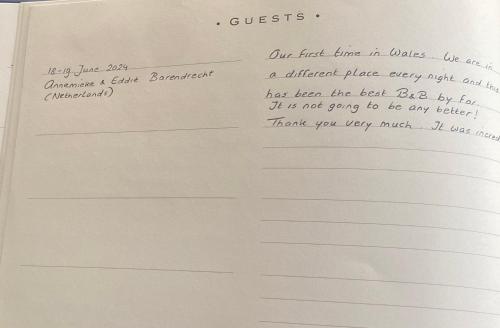 • GUESTS •
18-19 June 2024
Annemieke & Eddie Barendrecht
(Netherlands)
Our first time in Wales. We are in
a different place every night and this
has been the best B&B by far.
It is not going to be any better!
Thank you very much. It was incred